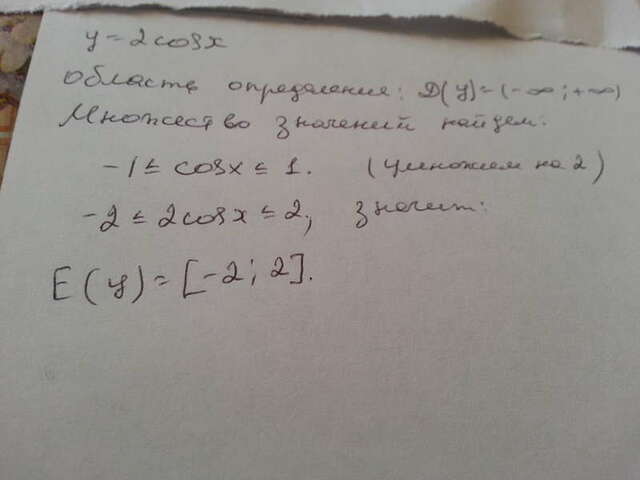 y = 2cosx
область определения: D(y)=(-∞;+∞)
Множество значений найдем:
-1 ≤ cosx ≤ 1. (умножим на 2)
-2 ≤ 2cosx ≤ 2, значит:
E(y)=[-2; 2].